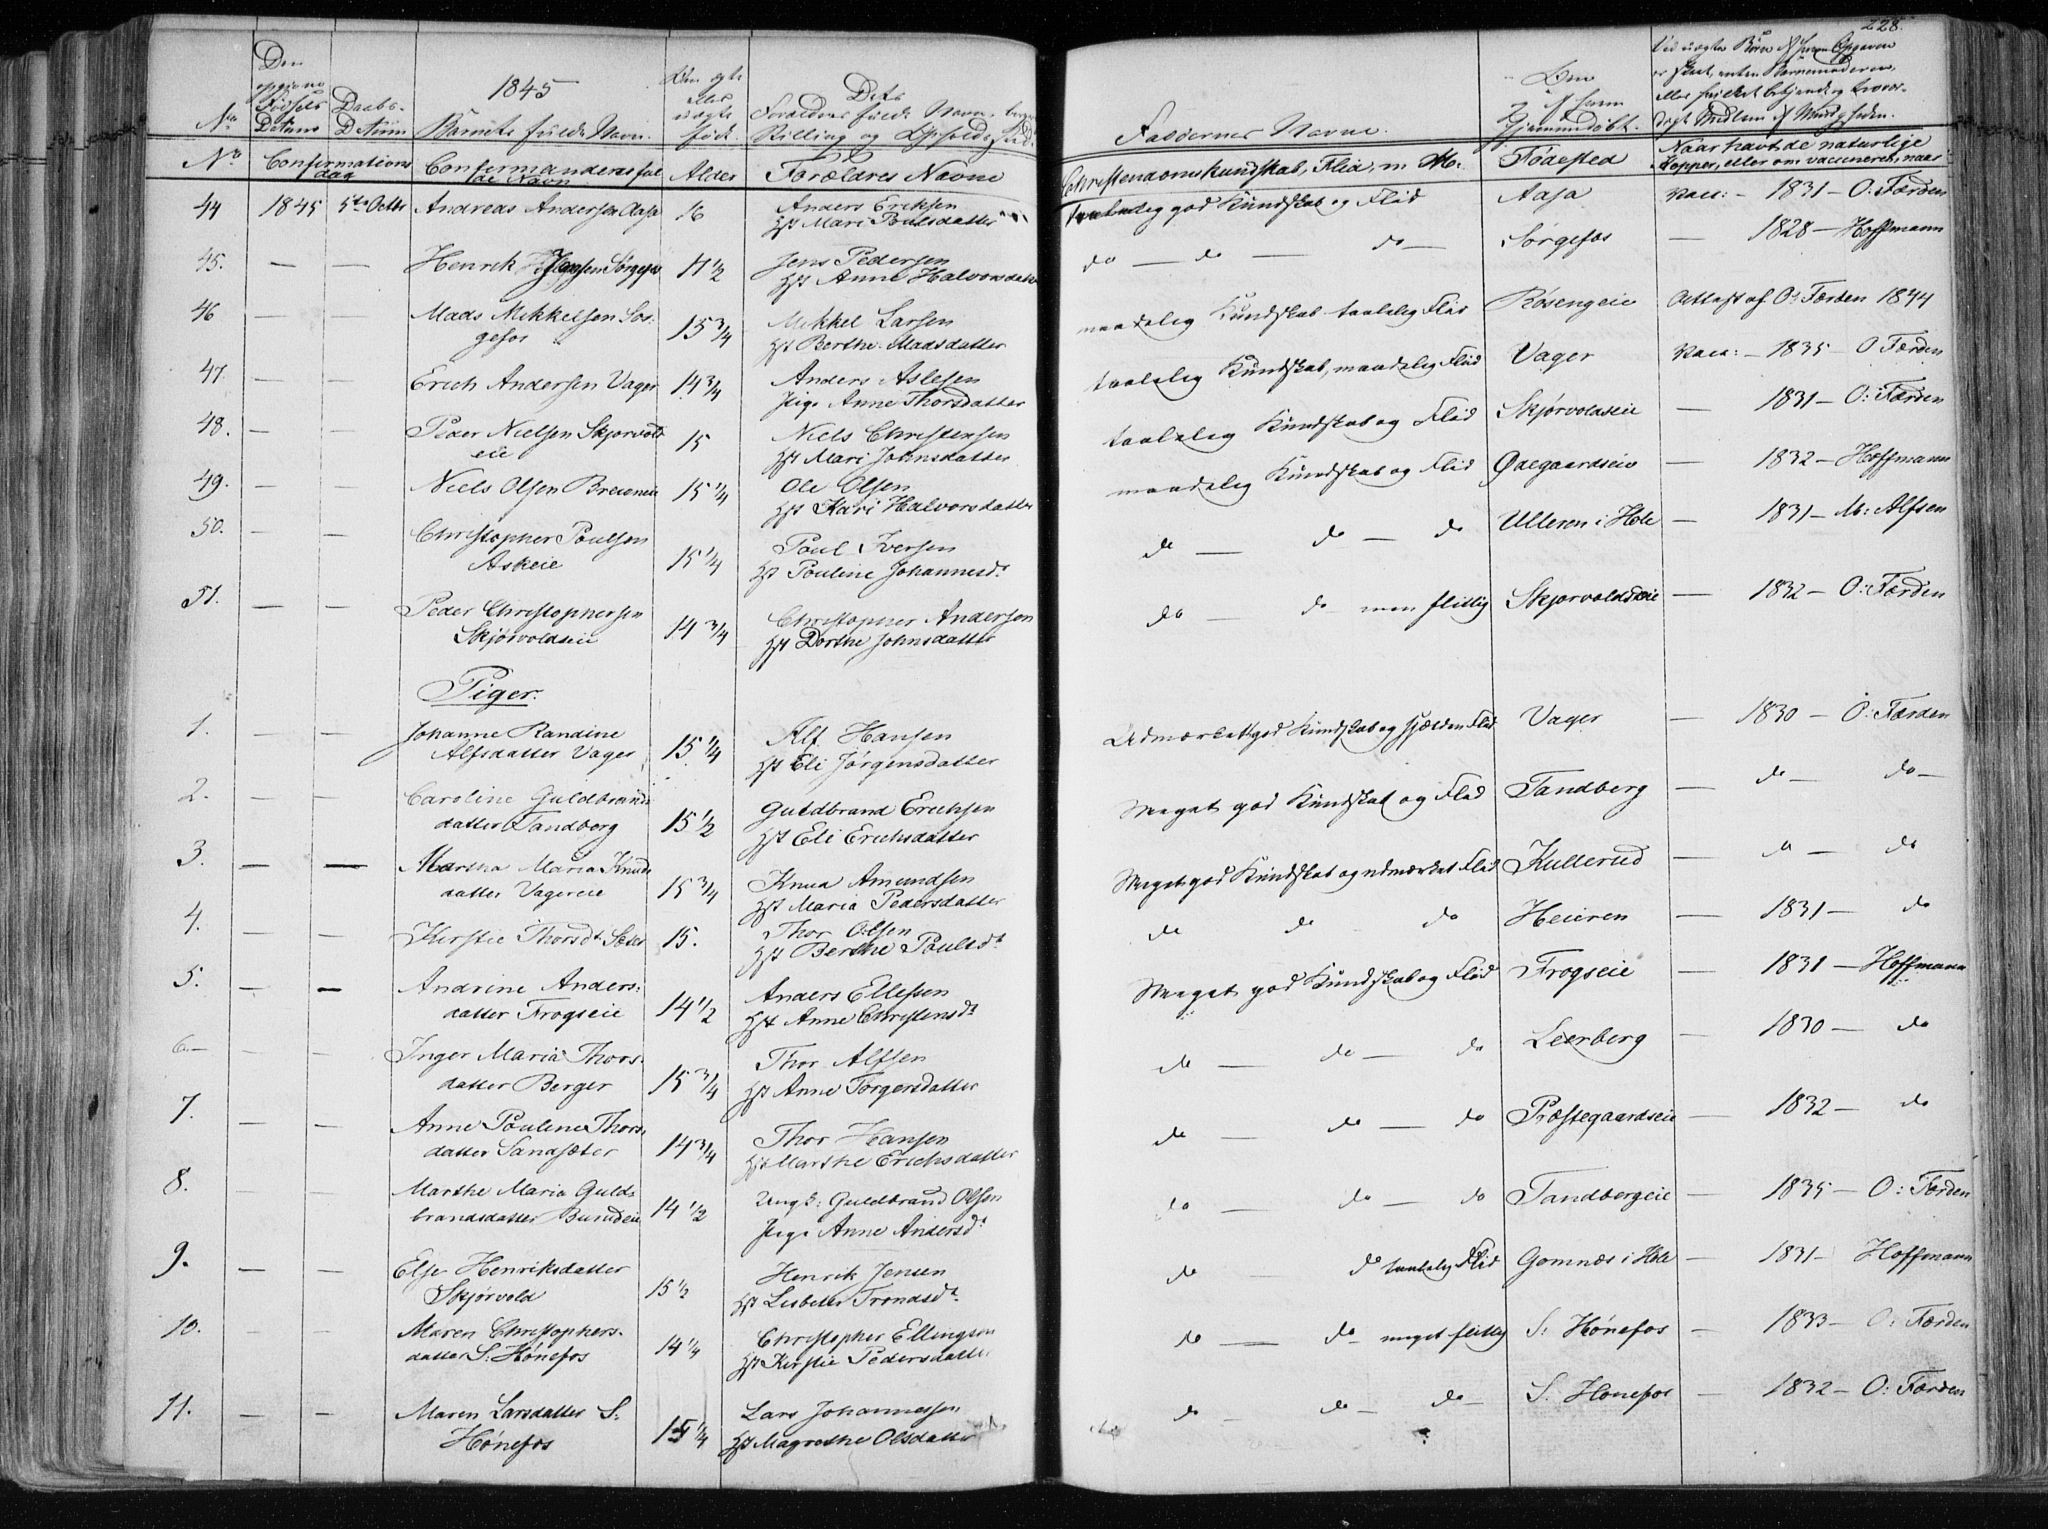 228.
1845
No
Den opgivne Fødsels Datum
Daabs-Datum
Barnets fulde Navn.
Om ægte eller uægte født.
Dets Forældres fulde Navn, Stilling og Opholds Sted.
Faddernes Navne.
Om Hjemmedøbt.
No Confirmations dag Confirmandernes fulde Navn Alder Forældres Navne Christendoms Kundskab, Flid, m. M: Fødested Naar havt de naturlige Kopper, eller om vaccineret, naar
44 1845 5te Octbr Andreas Andersen Aasa 16 Anders Eriksen Hst Mari Poulsdatter taalelig god Kundskab og Flid Aasa Vacc: - 1831 - O: Færden
45. — — Henrik Jensen Sørgefos 17 1/2 Jens Pedersen Hst Anne Halvorsdatter do — do — do — Sørgefos — 1828 — Hoffmann
46 — — Mads Mikkelsen Sørgefos 15 3/4 Mikkel Larsen Hst Berthe Madsdatter maadelig Kundskab taalelig Flid Rosengeie Attest af O: Færden 1844
47. — — Erich Andersen Vager 14 3/4 Anders Aslesen Pige Anne Thorsdatter taalelig Kundskab, maadelig Flid Vager Vacc: — 1835 — O Færden
48. — — Peder Nielsen Skjørvoldeie 15 Niels Christensen Hst Mari Johnsdatter taalelig Kundskab og Flid Skjørvoldseie — 1831 — O: Færden
49. — — Niels Olsen 15 1/4 Ole Olsen Hst Kari Halvorsdatter maadelig Kundskab og Flid Ødegaardseie — 1832 — Hoffmann
50. — — Christopher Poulsen Askeie 15 1/4 Poul Iversen Hst Pouline Johannesdt do — do — do Ulleren i Hole — 1831 — M: Alfsen
51. — — Peder Christophersen Skjørvoldseie 14 3/4 Christopher Andersen Hst Dorthe Johnsdatter do do men flittig Skjørvoldseie — 1832 — O: Færden
Piger.
1. — — Johanne Randine Alfsdatter Vager 15 1/4 Alf Hansen Hst Eli Jørgensdatter Udmærket god Kundskab og sjelden Flid Vager — 1830 — O: Færden
2. — — Caroline Guldbrandsdatter Tandberg 15 1/2 Guldbrand Erichsen Hst Eli Erichsdatter Meget god Kundskab og Flid Tandberg — do — do —
3. — — Martha Maria Knudsdatter Vagereie 15 3/4 Knud Amundsen Hst Maria Pedersdatter Meget god Kundskab og udmærket Flid Kullerud — do — do
4. — — Kirstie Thorsdt Sæter 15. Thor Olsen Hst Berthe Poulsdt do do do Heieren — 1831 — do
5. — — Andrine Andersdatter Frogseie 14 1/2 Anders Ellefsen Hst Anne Christensdt Meget god Kundskab og Flid Frogseie — 1831 — Hoffmann
6 — — Inger Maria Thorsdatter Berger 15 3/4 Thor Alfsen Hst Anne Torgersdatter do — do — do Leerberg — 1830 — do
7. — — Anne Pouline Thorsdatter Sandsæter 14 3/4 Thor Hansen Hst Marthe Erichsdatter do — do — do Præstegaardseie — 1832 — do
8. — — Marthe Maria Guldbrandsdatter 14 1/2 Ungk: Guldbrand Olsen Pige Anne Andersdt do do — do Tandbergeie — 1835 — O: Færden
9. — — Else Henriksdatter Skjørvold 15 1/2 Henrik Jensen Hst Lisbeth Trondsdt do — do taalelig Flid Gomnæs i Hole — 1831 — Hoffmann
10. — — Maren Christophersdatter S: Hønefos 14 1/4 Christopher Ellingsen Hst Kirstie Pedersdatter do — do meget flittig S: Hønefos — 1833 — O: Færden
11. — — Maren Larsdatter S: Hønefos 15 1/4 Lars Johannessen Hst Magrethe Olsdatter do — do — do — S: Hønefos — 1832 — O: Færden